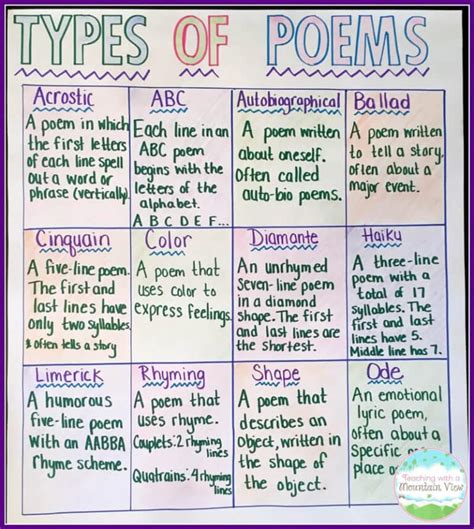 TYPES OF POEMS
Acrostic
A poem in which
the first letters
of each line spell
out a word or
phrase (vertically).
ABC
Each line in an
ABC poem
begins with the
letters of the
alphabet.
A B C D E F...
Autobiographical
A poem written
about oneself.
Often called
auto-bio poems.
Ballad
A poem written
to tell a story,
often about a
major event.
Cinquain
A five-line poem.
The first and
last lines have
only two syllables.
& often tells a story
Color
A poem that
uses color to
express feelings.
Diamante
An unrhymed
Seven-line poem
in a diamond
shape. The first and
last lines are
the shortest.
Haiku
A three-line
poem with a
total of 17
syllables. The
first and last
lines have 5.
Middle line has 7.
Limerick
A humorous
five-line poem
with an AABBA
rhyme scheme.
Rhyming
A poem that
uses rhyme.
Couplets: 2 rhyming
lines
Quatrains: 4 rhyming
lines
Shape
A poem that
describes an
object, written in
the shape of
the object.
Ode
An emotional
lyric poem,
often about a
Specific
place o
Teaching with a
Mountain View